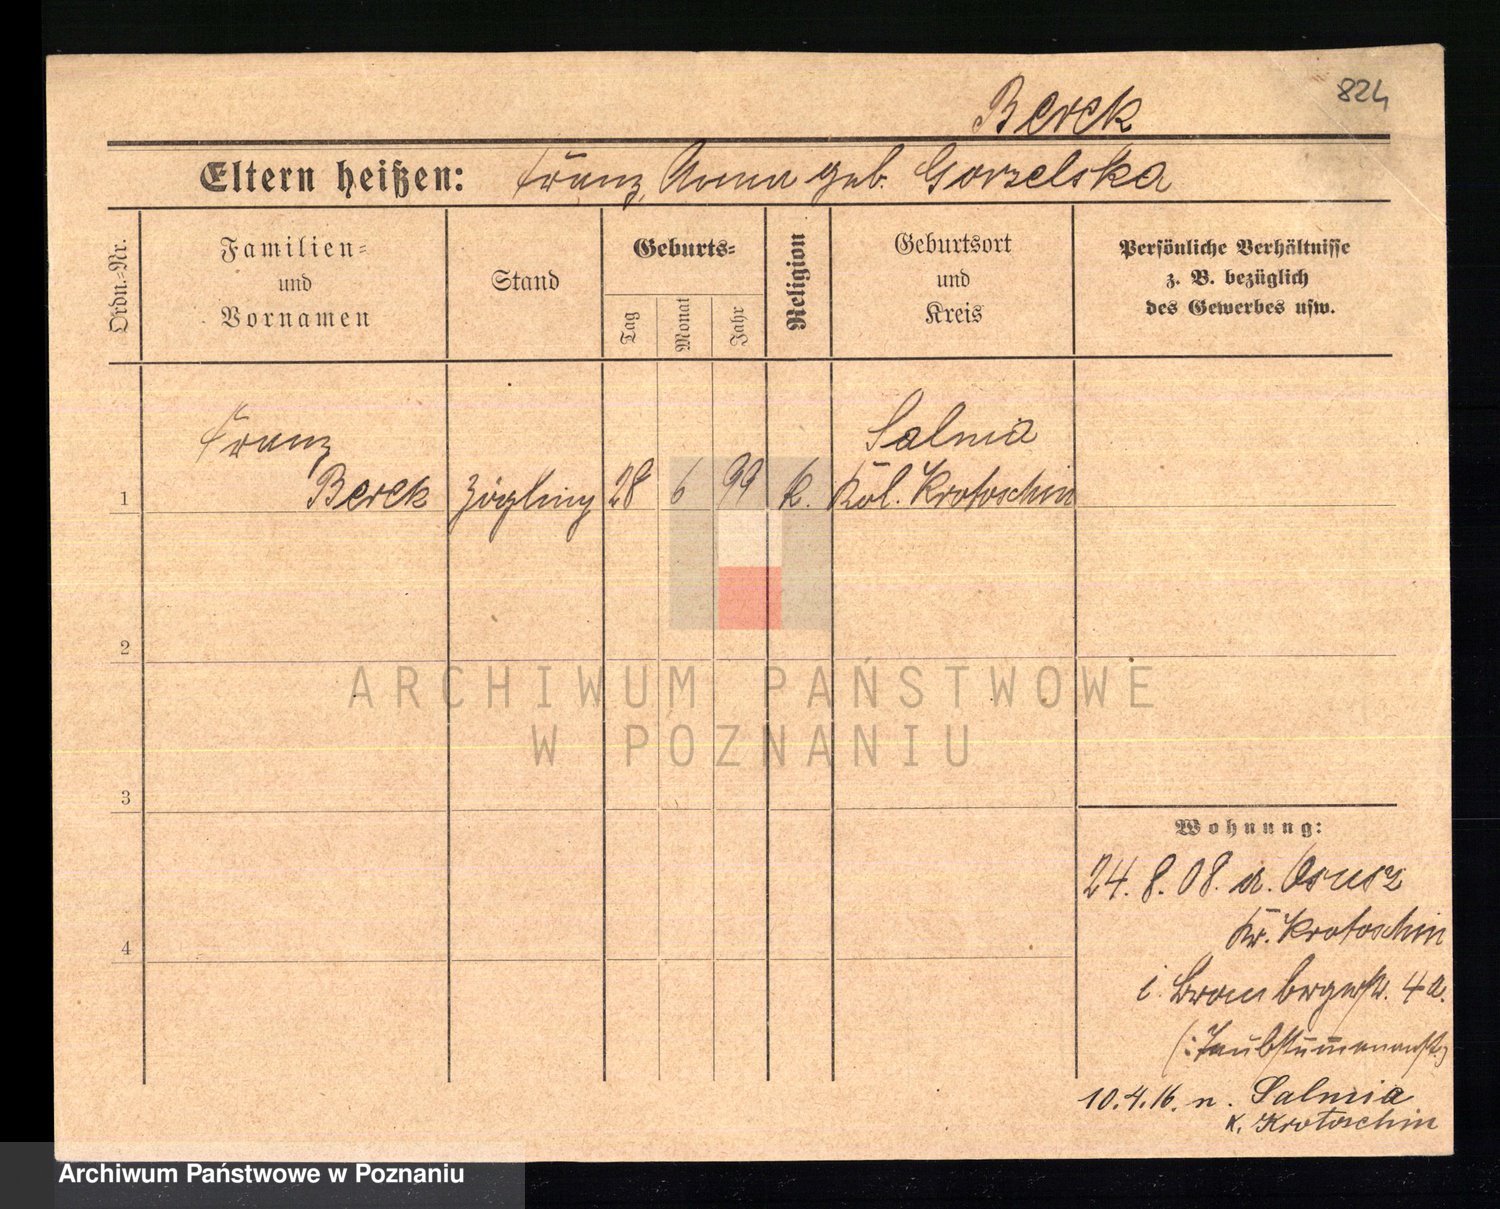 824
Berek
Eltern heißen: Franz, Anna geb. Gorzelska
Ordn.-Nr.
Familien- und Vornamen
Stand
Geburts-
Tag
Monat
Jahr
Religion
Geburtsort und Kreis
Persönliche Verhältnisse
z. B. bezüglich
des Gewerbes usw.
Franz
Salnia
1 Berek Zögling 28 6 99 k. Kol. Krotoschin
2
3
4
Wohnung:
24. 8. 08. a.
Kr. Krotoschin
i. Brombergerstr. 4a.
(: Taubstummenanst.
10.4.16. n. Salnia
K. Krotoschin
ARCHIWUM PAŃSTWOWE
W POZNANIU
Archiwum Państwowe w Poznaniu